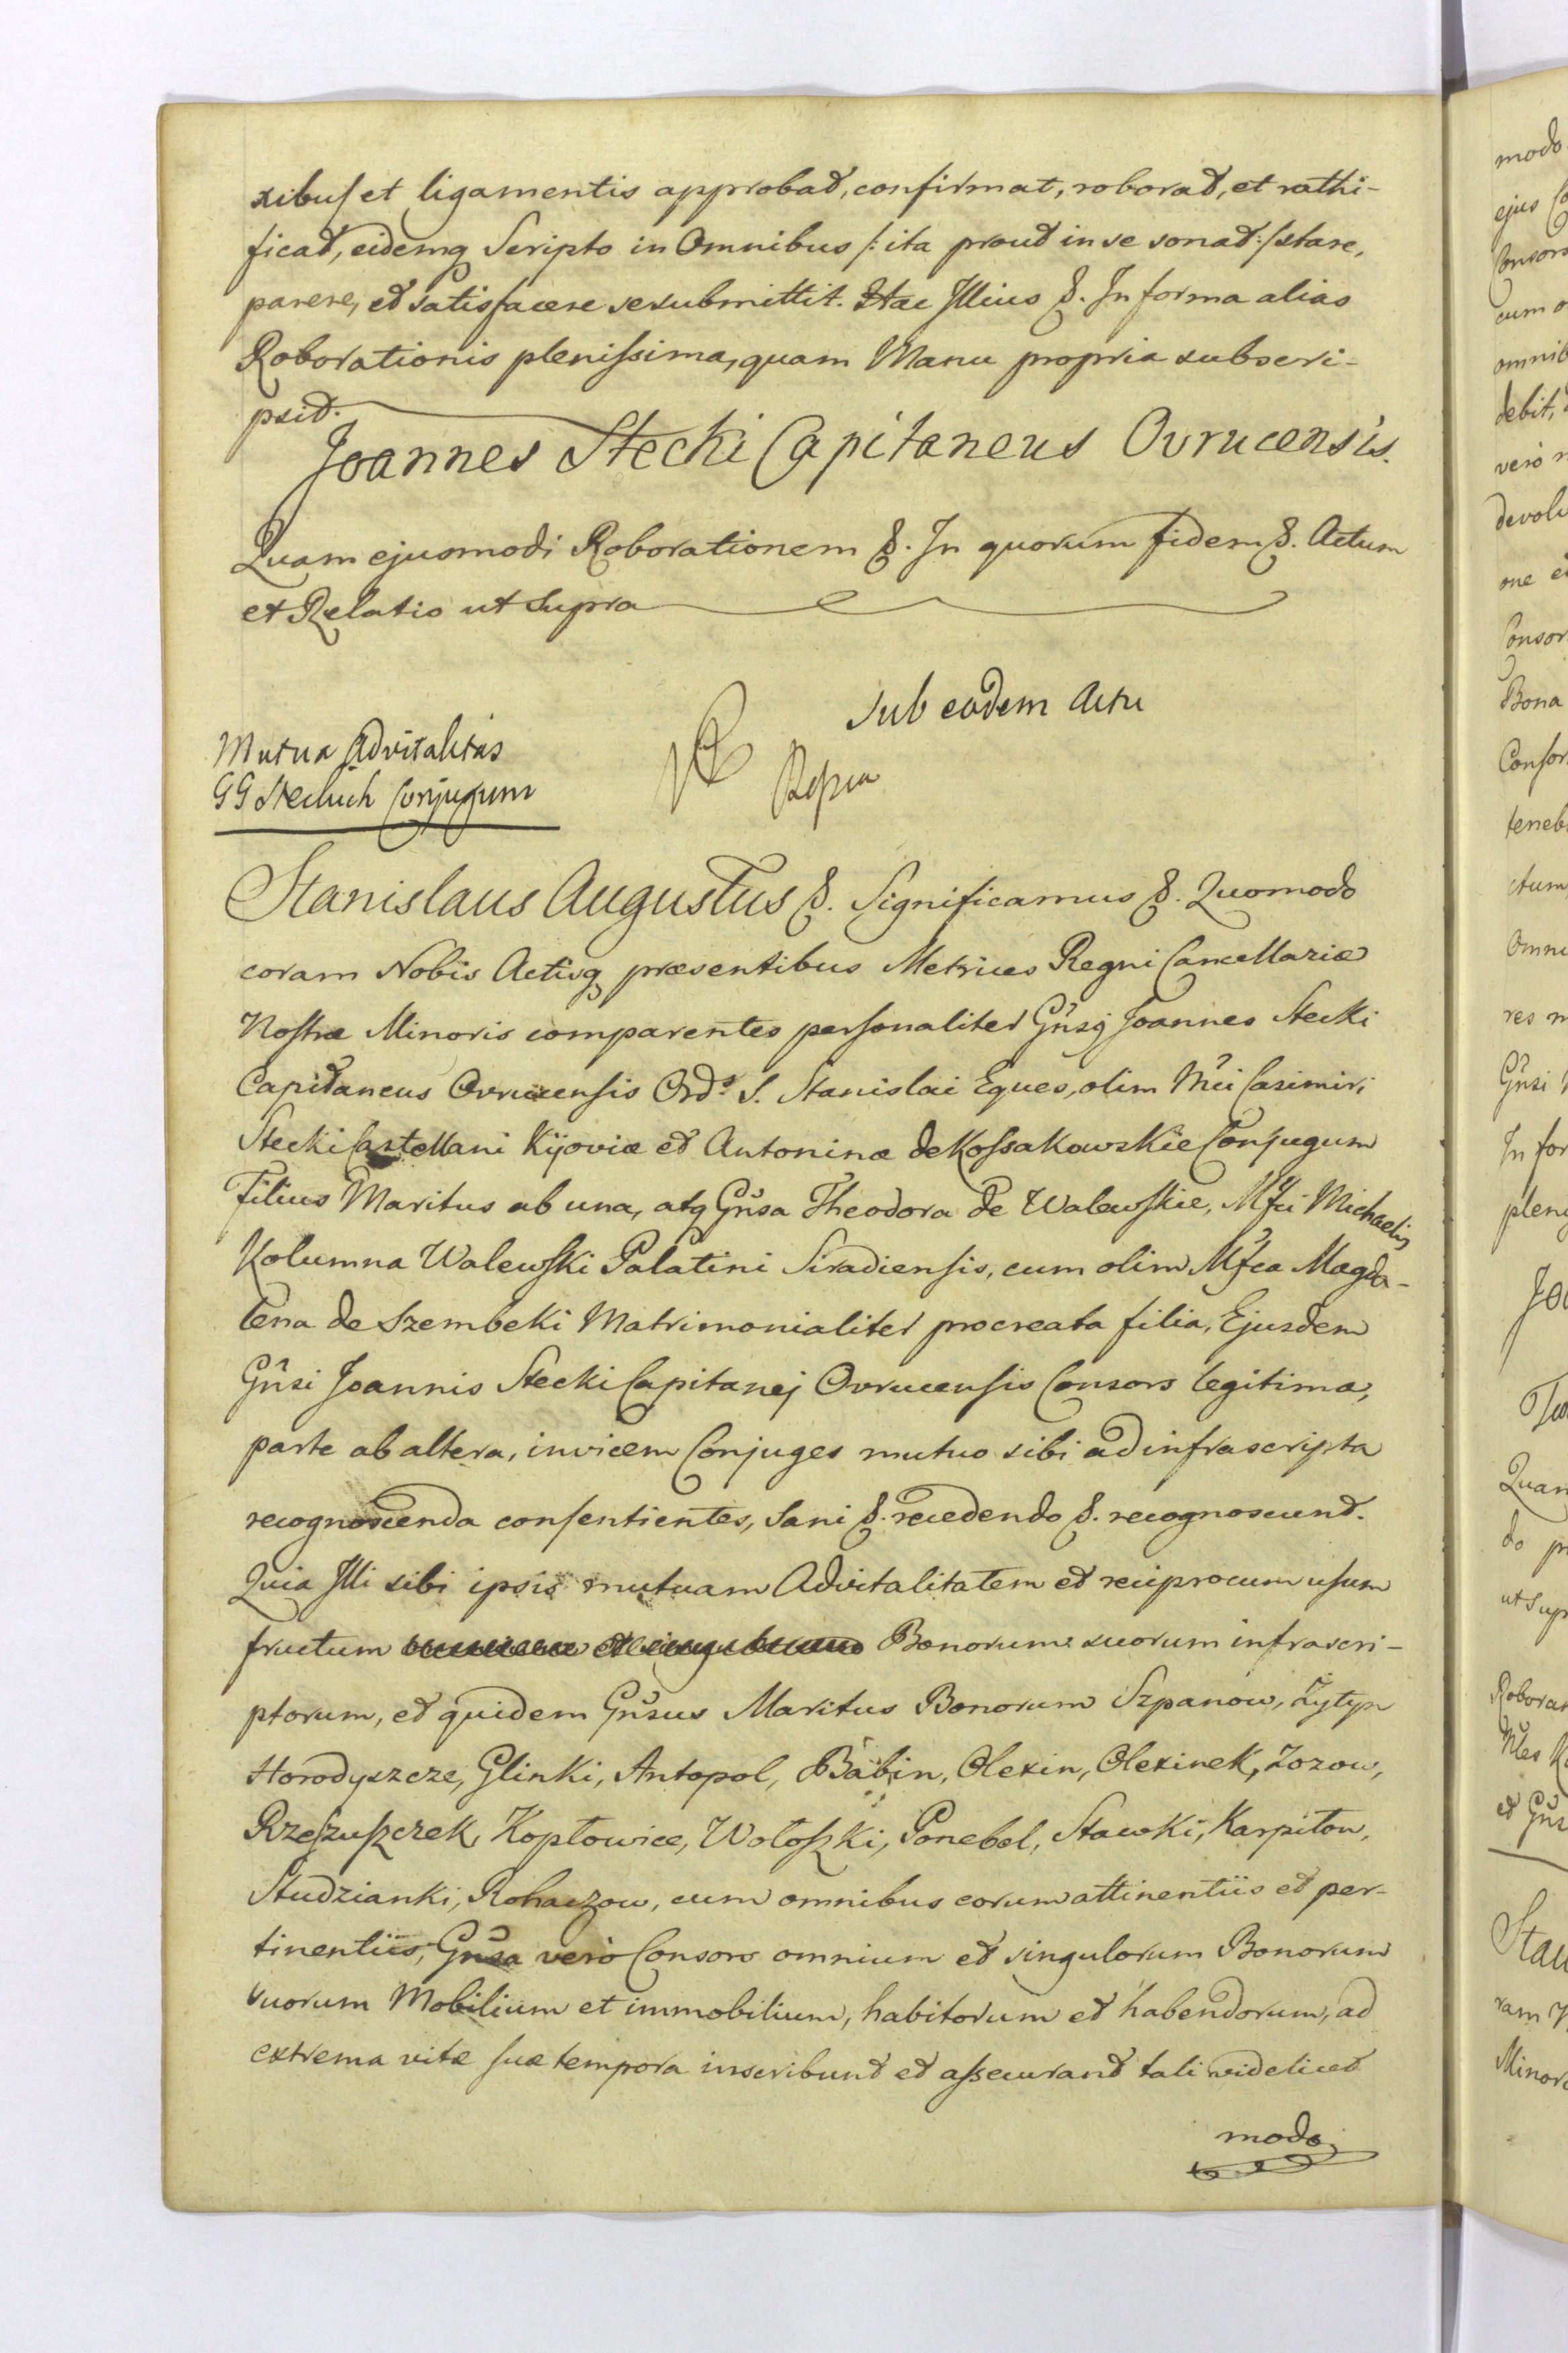 xibus et ligamentis approbat, confirmat, roborat, et rathi-
ficat, eidemq Scripto in Omnibus /: ita prout in se sonat :/ stare,
parere, et satisfacere se submittit. Hac Illius &. In forma alias
Roborationis plenissima, quam Manu propria subscri-
psit.
Joannes Stecki Capitaneus Ovrucensis.
Quam ejusmodi Roborationem &. In quorum fidem &. Actum
et Relatio ut Supra
Sub eodem Actu
Mutua Advitalitas
GG Steckich Conjugum
Stanislaus Augustus &. Significamus &. Quomodo
coram Nobis Actisq præsentibus Metrices Regni Cancellariæ
Nostræ Minoris comparentes personaliter Gnsg Joannes Stecki
Capitaneus Ovrucensis Ords S. Stanislai Eques, olim Mci Casimiri
Stecki Castellani Kijoviæ et Antoninæ de Kossakowskie Conjugum
Filius Maritus ab una, atq Gnsa Theodora de Walewskie, Mfci Michaelis
Kolumna Walewski Palatini Siradiensis, cum olim Mfca Magda-
lena de Szembeki Matrimonialiter procreata filia, Ejusdem
Gnsi Joannis Stecki Capitanej Ovrucensis Consors legitima,
parte ab altera, invicem Conjuges mutuo sibi ad infrascripta
recognoscenda consentientes, Sani &. recedendo &. recognoscunt.
Quia Illi sibi ipsis mutuam Advitalitatem et reciprocum usum
fructum Bonorum suorum infrascri-
ptorum, et quidem Gnsus Maritus Bonorum Szpanow, Zytyn
Horodyszcze, Glinki, Antopol, Babin, Olexin, Olexinek, Zozow,
Rzeszuszczek, Koptowice, Wołoszki, Ponebel, Stawki, Karpiłow,
Studzianki, Rohaczow, cum omnibus eorum attinentiis et per-
tinentiis, Gnsa verò Consors omnium et singulorum Bonorum
suorum Mobilium et immobilium, habitorum et habendorum, ad
extrema vitæ suæ tempora inscribunt et assecurant tali videlicet
modo